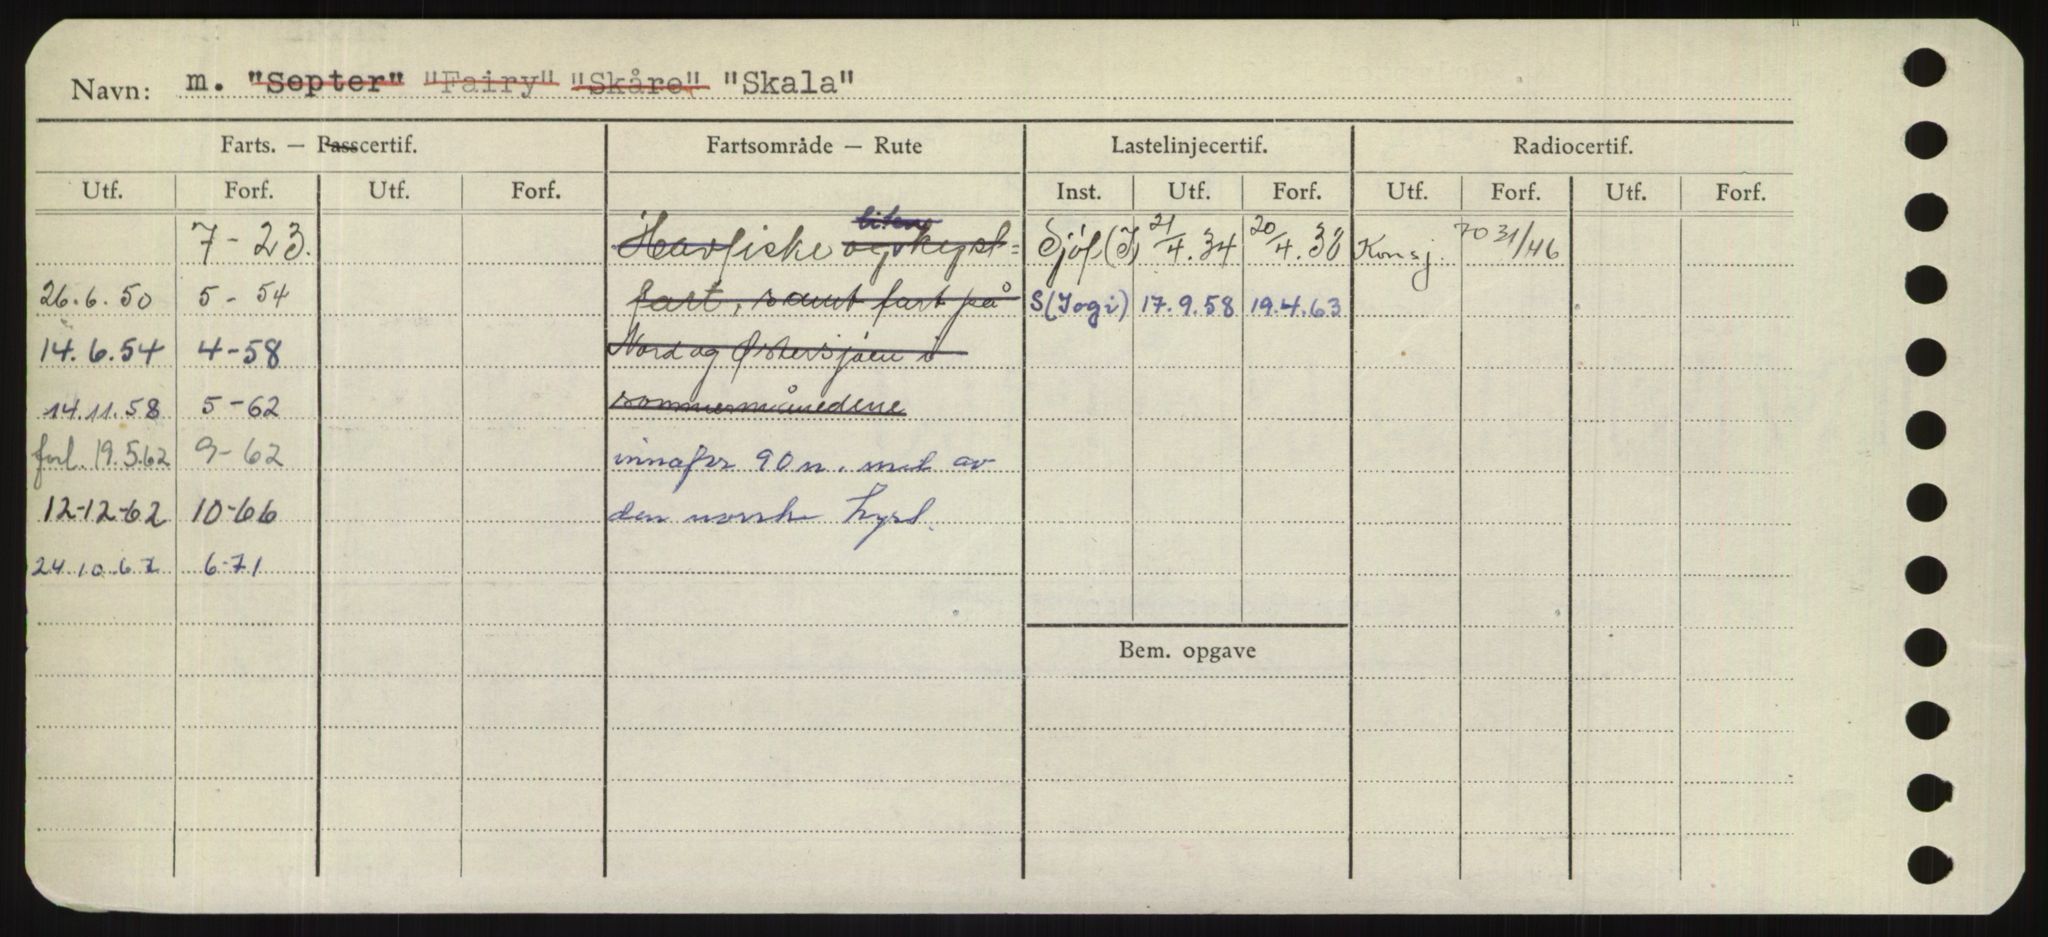 Navn: m. "Septer" "Fairy" "Skåre" "Skala"
Farts. — Passcertif. Fartsområde — Rute Lastelinjecertif. Radiocertif.
Utf. Forf. Utf. Forf. Inst. Utf. Forf. Utf. Forf. Utf. Forf.
liten
7-23. Havfiske og kyst= Sjöf(J) 21/4.34 20/4.38 Konsj. 31/46
26.6.50 5-54 fart, samt fart på S(Jogi) 17.9.58 19.4.63
14.6.54 4-58 Nord og Østersjøen i
14.11.58 5-62 sommermånedene
forl. 19.5.62 9-62 innafor 90 n. mil av
12-12-62 10-66 den norske kyst.
24.10.67 6-71
Bem. opgave